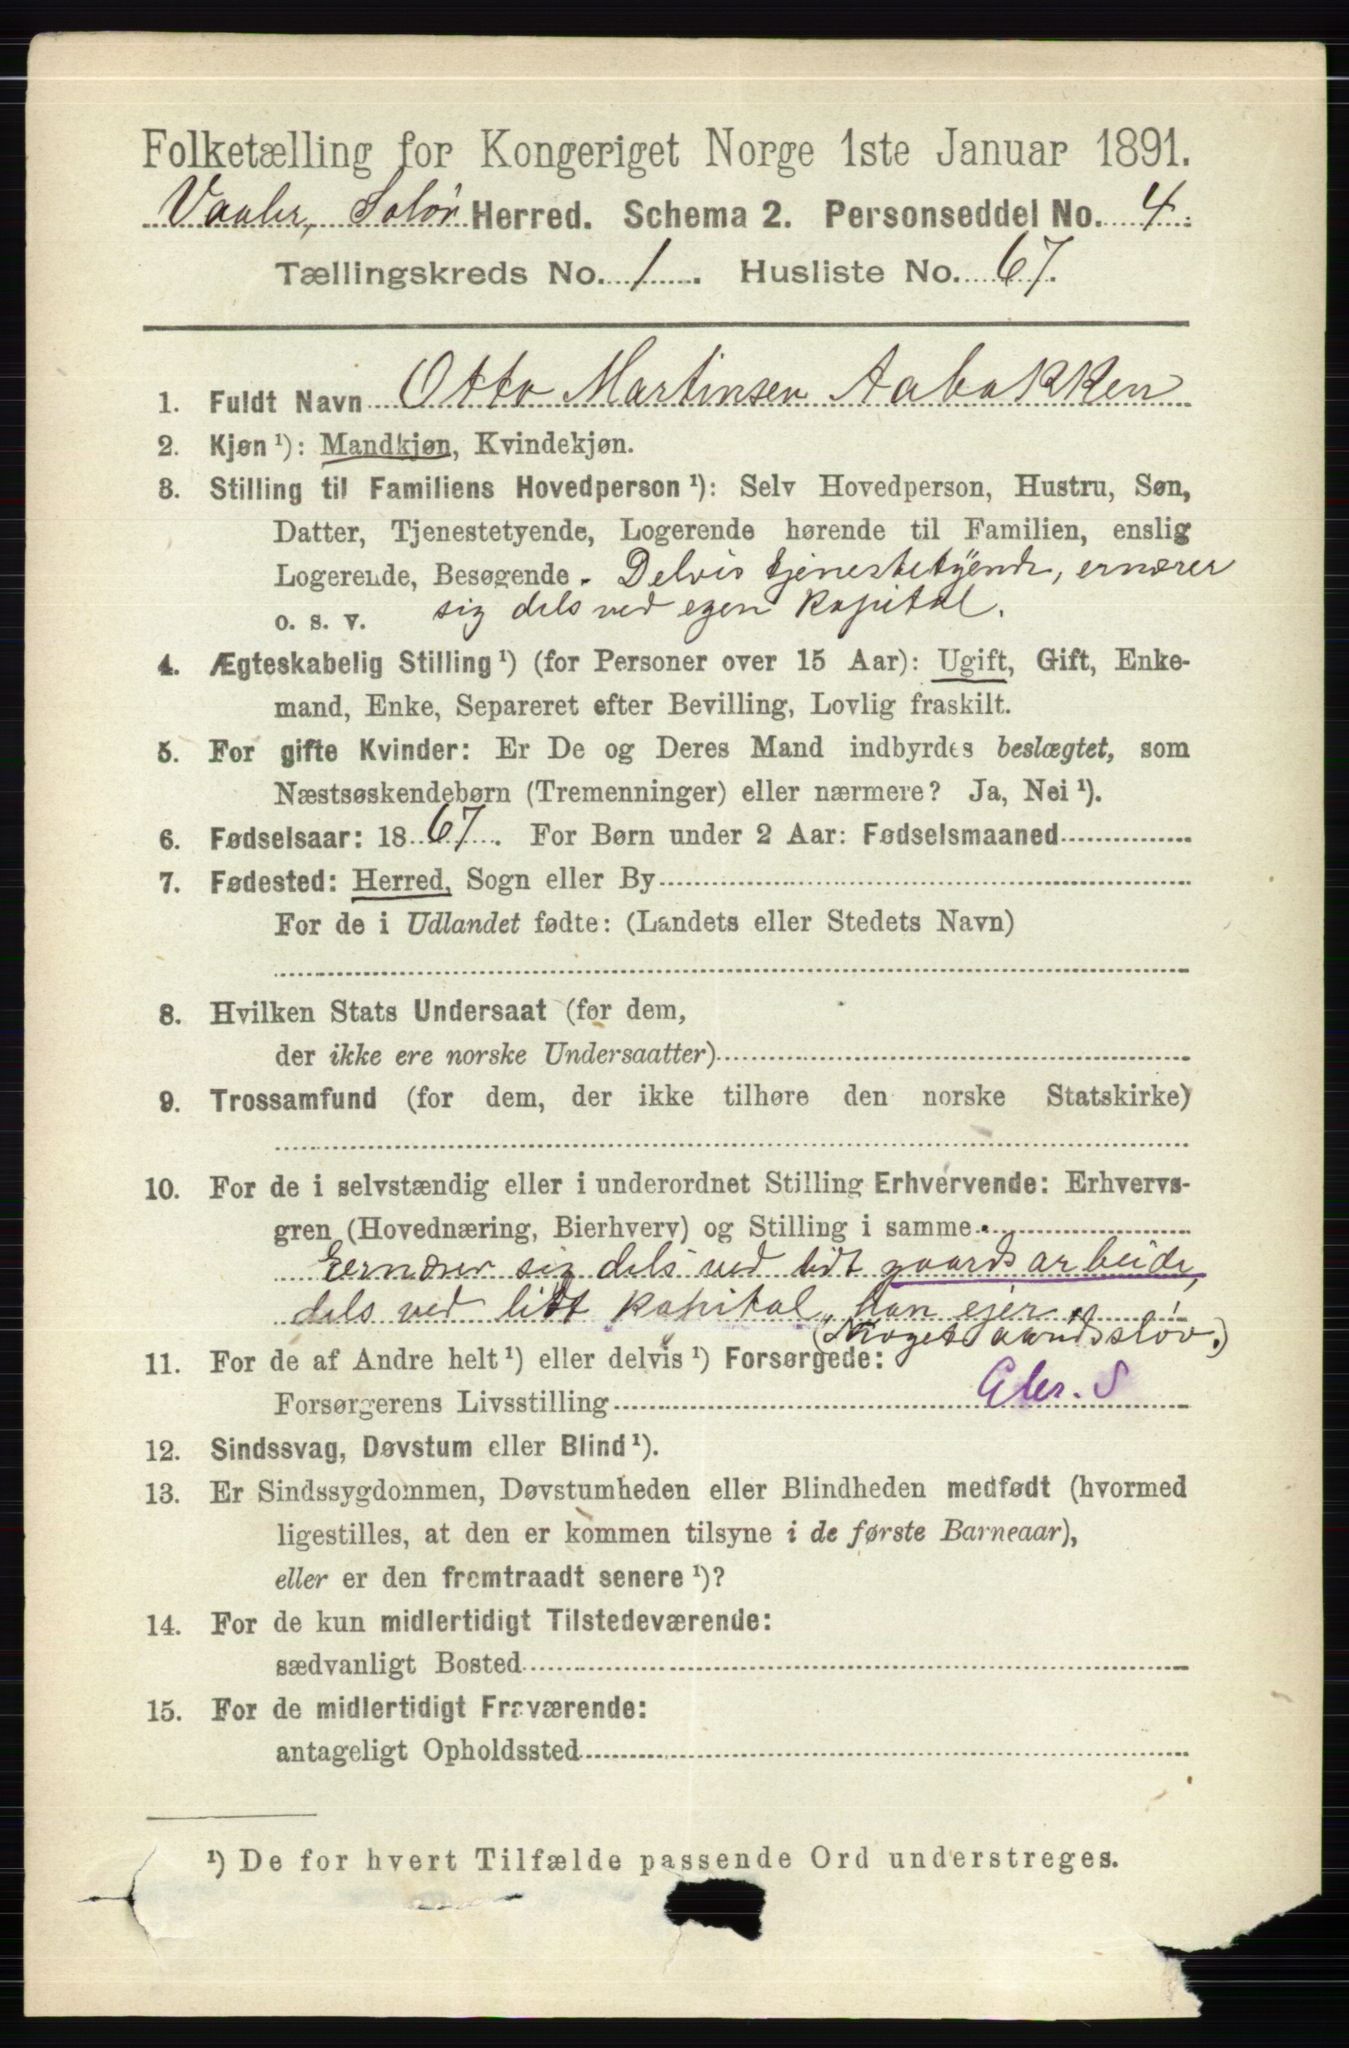 Folketælling for Kongeriget Norge 1ste Januar 1891.
Vaaler, Solør Herred. Schema 2. Personseddel No. 4.
Tællingskreds No. 1. Husliste No. 67.
1. Fuldt Navn Otto Martinsen Aabakken
2. Kjøn ¹): Mandkjøn, Kvindekjøn.
3. Stilling til Familiens Hovedperson ¹): Selv Hovedperson, Hustru, Søn,
Datter, Tjenestetyende, Logerende hørende til Familien, enslig
Logerende, Besøgende. Delvis tjenestetyende, ernærer
o. s. v. sig dels ved egen kapital.
4. Ægteskabelig Stilling ¹) (for Personer over 15 Aar): Ugift, Gift, Enke-
mand, Enke, Separeret efter Bevilling, Lovlig fraskilt.
5. For gifte Kvinder: Er De og Deres Mand indbyrdes beslægtet, som
Næstsøskendebørn (Tremenninger) eller nærmere? Ja, Nei ¹).
6. Fødselsaar: 1867. For Børn under 2 Aar: Fødselsmaaned
7. Fødested: Herred, Sogn eller By
For de i Udlandet fødte: (Landets eller Stedets Navn)
8. Hvilken Stats Undersaat (for dem,
der ikke ere norske Undersaatter)
9. Trossamfund (for dem, der ikke tilhøre den norske Statskirke)
10. For de i selvstændig eller i underordnet Stilling Erhvervende: Erhvervs-
gren (Hovednæring, Bierhverv) og Stilling i samme.
Eernærer sig dels ved lidt gaardsarbeide,
dels ved lidt kapital, han ejer
(Noget aandssløv.)
11. For de af Andre helt ¹) eller delvis ¹) Forsørgede:
Forsørgerens Livsstilling
12. Sindssvag, Døvstum eller Blind ¹).
13. Er Sindssygdommen, Døvstumheden eller Blindheden medfødt (hvormed
ligestilles, at den er kommen tilsyne i de første Barneaar),
eller er den fremtraadt senere ¹)?
14. For de kun midlertidigt Tilstedeværende:
sædvanligt Bosted
15. For de midlertidigt Fraværende:
antageligt Opholdssted
¹) De for hvert Tilfælde passende Ord understreges.